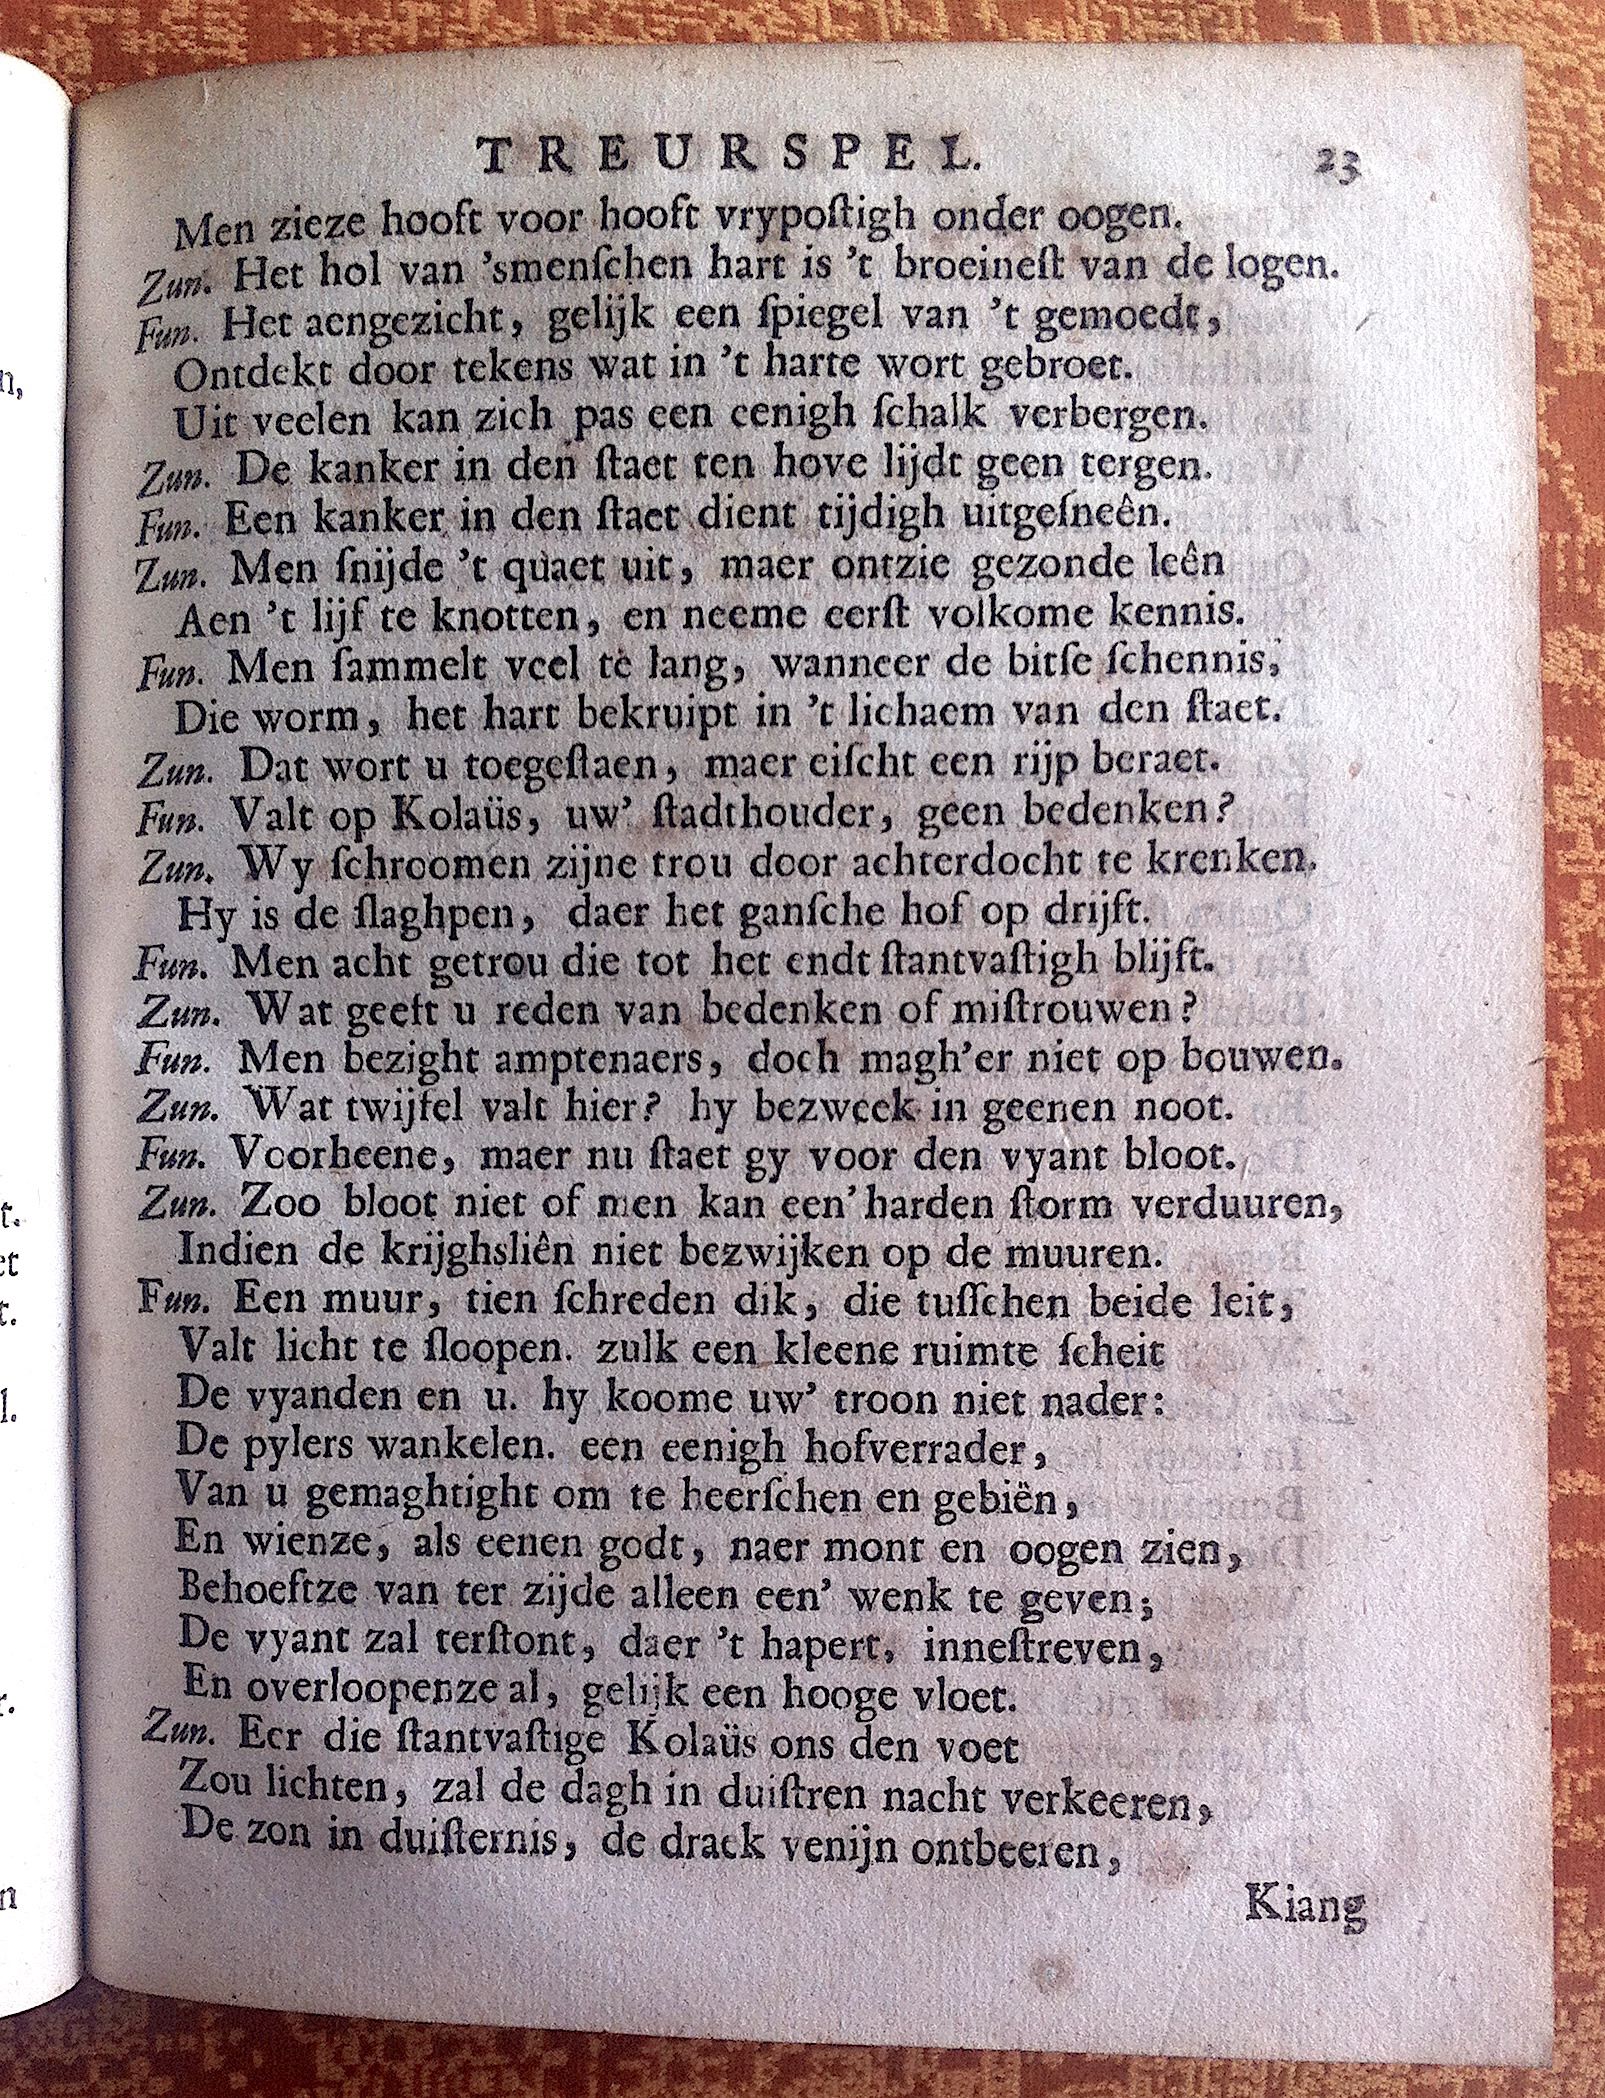 TREURSPEL. 23
Men zieze hooft voor hooft vrypoſtigh onder oogen.
Zun. Het hol van 'smenſchen hart is 't broeineſt van de logen.
Fun. Het aengezicht, gelijk een ſpiegel van 't gemoedt,
Ontdekt door tekens wat in 't harte wort gebroet.
Uit veelen kan zich pas een eenigh ſchalk verbergen.
Zun. De kanker in den ſtaet ten hove lijdt geen tergen.
Fun. Een kanker in den ſtaet dient tijdigh uitgeſneên.
Zun. Men ſnijde 't quaet uit, maer ontzie gezonde leên
Aen 't lijf te knotten, en neeme eerſt volkome kennis.
Fun. Men ſammelt veel te lang, wanneer de bitſe ſchennis,
Die worm, het hart bekruipt in 't lichaem van den ſtaet.
Zun. Dat wort u toegeſtaen, maer eiſcht een rijp beraet.
Fun. Valt op Kolaüs, uw' ſtadthouder, geen bedenken?
Zun. Wy ſchroomen zijne trou door achterdocht te krenken.
Hy is de ſlaghpen, daer het ganſche hof op drijft.
Fun. Men acht getrou die tot het endt ſtantvaſtigh blijft.
Zun. Wat geeft u reden van bedenken of miſtrouwen?
Fun. Men bezight amptenaers, doch magh'er niet op bouwen.
Zun. Wat twijfel valt hier? hy bezweek in geenen noot.
Fun. Voorheene, maer nu ſtaet gy voor den vyant bloot.
Zun. Zoo bloot niet of men kan een' harden ſtorm verduuren,
Indien de krijghsliên niet bezwijken op de muuren.
Fun. Een muur, tien ſchreden dik, die tuſſchen beide leit,
Valt licht te ſloopen. zulk een kleene ruimte ſcheit
De vyanden en u. hy koome uw' troon niet nader:
De pylers wankelen. een eenigh hofverrader,
Van u gemaghtight om te heerſchen en gebiën,
En wienze, als eenen godt, naer mont en oogen zien,
Behoeftze van ter zijde alleen een' wenk te geven;
De vyant zal terſtont, daer 't hapert, inneſtreven,
En overloopenze al, gelijk een hooge vloet.
Zun. Eer die ſtantvaſtige Kolaüs ons den voet
Zou lichten, zal de dagh in duiſtren nacht verkeeren,
De zon in duiſternis, de draek venijn ontbeeren,
Kiang